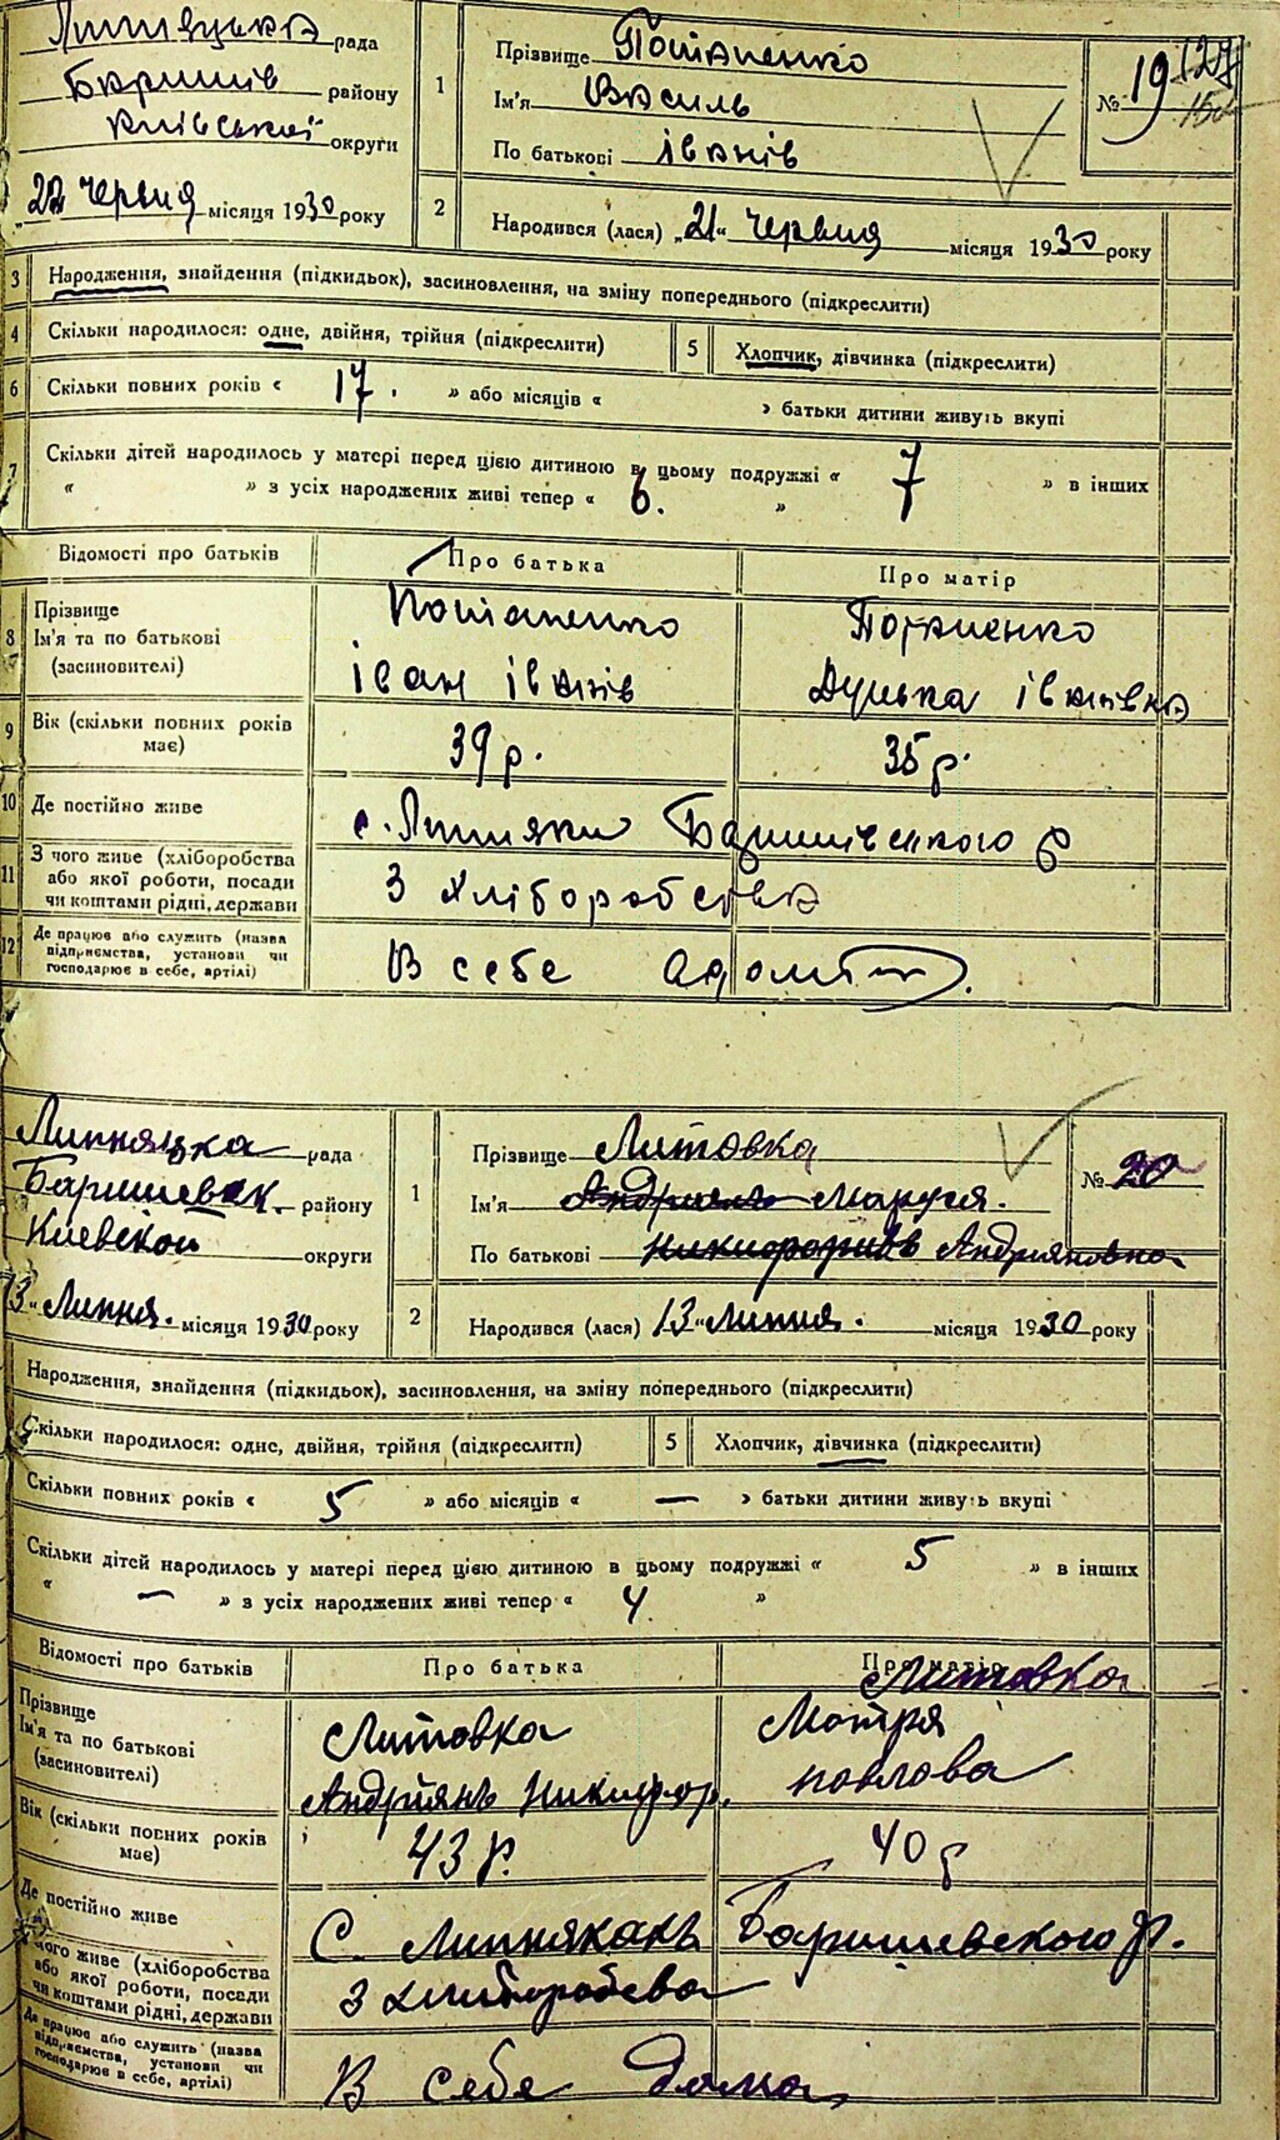 Липняцька рада
Баришів району
Київської округи
„22 червня місяця 1930 року
1
Прізвище Потапенко
Ім'я Василь
По батькові Іванів
№ 19
2
Народився (лася) „21“ червня місяця 1930 року
3 Народження, знайдення (підкидьок), засиновлення, на зміну попереднього (підкреслити)
4 Скільки народилося: одне, двійня, трійня (підкреслити) 5 Хлопчик, дівчинка (підкреслити)
6 Скільки повних років « 17. » або місяців « » батьки дитини живуть вкупі
7 Скільки дітей народилось у матері перед цією дитиною в цьому подружжі « 7 » в інших
« » з усіх народжених живі тепер « 6. »
Відомості про батьків Про батька Про матір
8 Прізвище Ім'я та по батькові (засиновителі)
Потапенко Потапенко
Іван Іванів Дунька Іванівна
9 Вік (скільки повних років має) 39 р. 35 р.
10 Де постійно живе с. Липняки Баришівського р
11 З чого живе (хліборобства або якої роботи, посади чи коштами рідні, держави З хліборобства
12 Де працює або служить (назва підприємства, установи чи господарює в себе, артілі) В себе
Липняцка рада
Баришевск. району
Киевской округи
13“ Липня. місяця 1930 року
1
Прізвище Литовка
Ім'я Маруся.
По батькові Андрияновна
№ 20
2
Народився (лася) 13“ Липня. місяця 1930 року
Народження, знайдення (підкидьок), засиновлення, на зміну попереднього (підкреслити)
Скільки народилося: одне, двійня, трійня (підкреслити) 5 Хлопчик, дівчинка (підкреслити)
Скільки повних років « 5 » або місяців « — » батьки дитини живуть вкупі
Скільки дітей народилось у матері перед цією дитиною в цьому подружжі « 5 » в інших
« — » з усіх народжених живі тепер « 4. »
Відомості про батьків Про батька Про матір
Прізвище Ім'я та по батькові (засиновителі)
Литовка
Литовка Мотря
Андріянъ Никифор. павлова
Вік (скільки повних років має) 43 р. 40 р
Де постійно живе С. Липняках Баришевского р.
чого живе (хліборобства або якої роботи, посади чи коштами рідні, держави З хлиборобсва
Де працює або служить (назва підприємства, установи чи господарює в себе, артілі) В себе дома